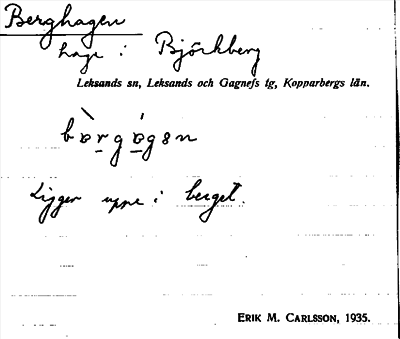 Berghagen
hage i Björkberg
Leksands sn, Leksands och Gagnefs tg, Kopparbergs län.
Ligger uppe i berget.
ERIK M. CARLSSON, 1935.